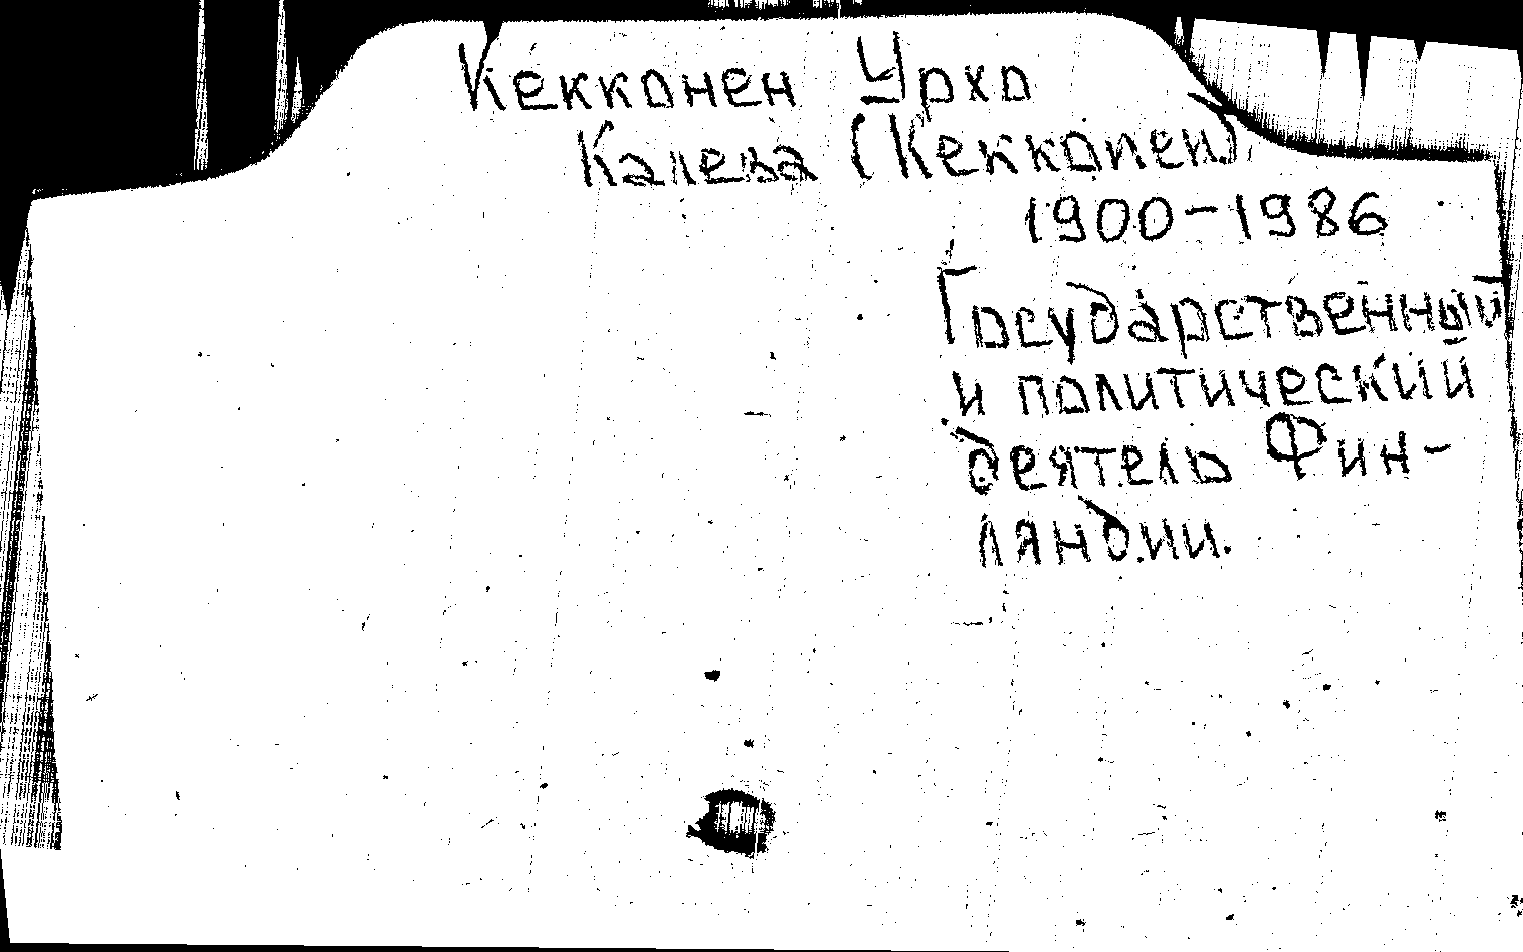 Кекконен Урхо
Калева (Кекконен)
1900-1986
Государственный
и политический
деятель Фин-
ляндии.